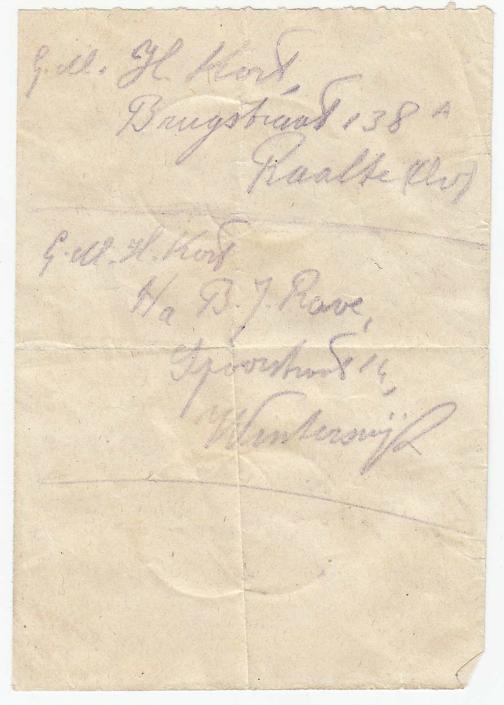 G.M. H Kort,
Brugstraat 138 A
Raalte (Ov)
G.M. H. Kort
B. J. Rave,
Spoorstraat 14,
Winterswijk